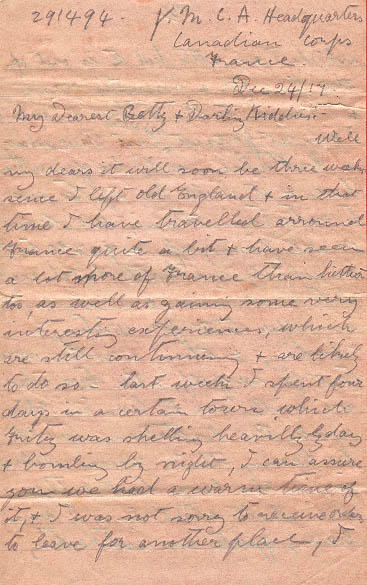 291494. Y. M. C. A. Headquarters
Canadian Corps
France.
Dec 24/17.
My Dearest Betty & Darling Kiddies.
Well
my dears it will soon be three weeks
sence I left old England & in that
time I have travelled arround
France quite a bit & have seen
a lot more of France than hitherto
too, as well as gaining some very
interesting experiences, which
are still continuing & are likely
to do so - last week I spent four
days in a certain town which
Fritz was shelling heavilly by day
& bombing by night, I can assure
you we had a warm time of
it, & I was not sorry to receive orders
to leave for another place, I